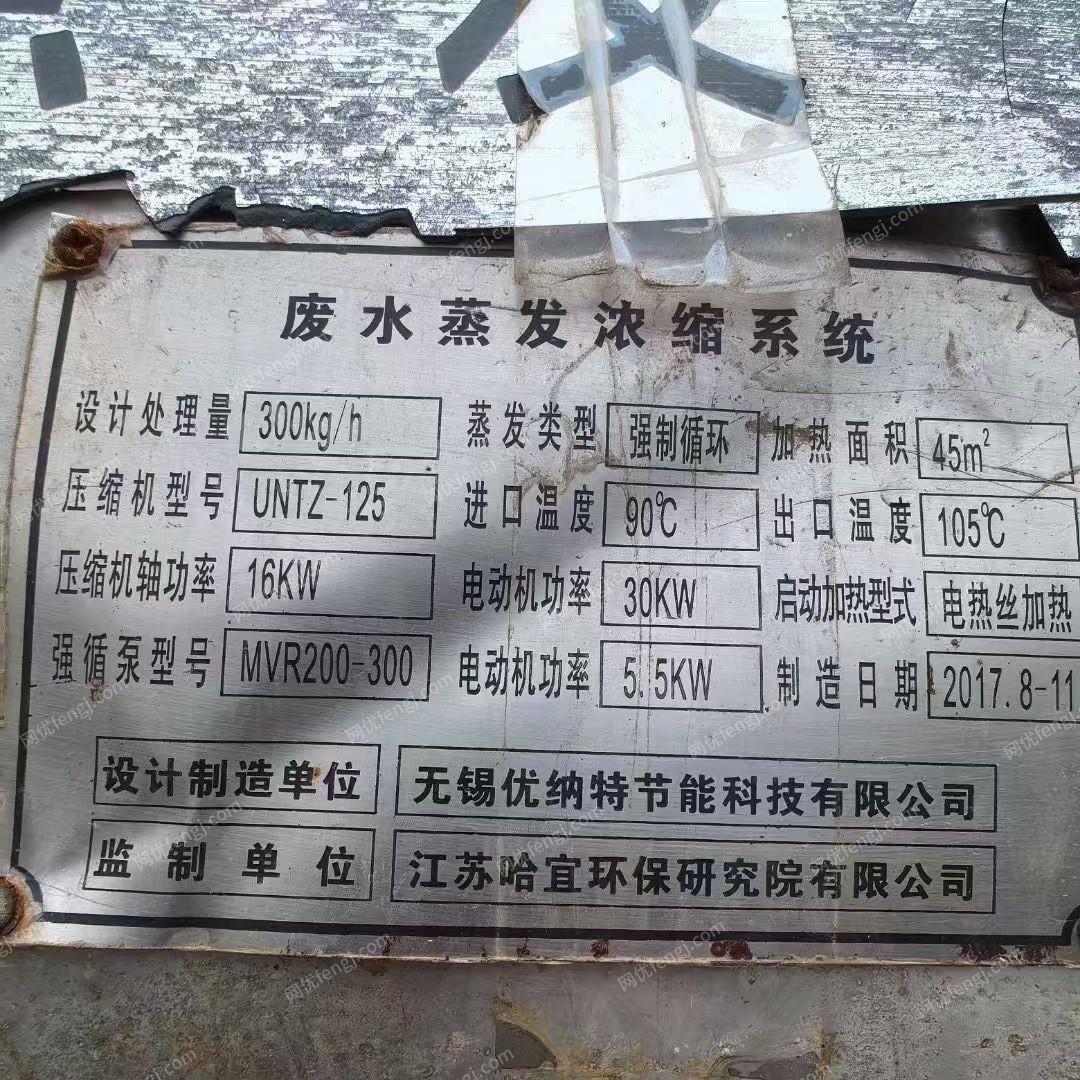 废水蒸发浓缩系统
设计处理量 300kg/h 蒸发类型 强制循环 加热面积 45m²
压缩机型号 UNTZ-125 进口温度 90℃ 出口温度 105℃
压缩机轴功率 16KW 电动机功率 30KW 启动加热型式 电热丝加热
强循泵型号 MVR200-300 电动机功率 5.5KW 制造日期 2017.8-11
设计制造单位 无锡优纳特节能科技有限公司
监制单位 江苏哈宜环保研究院有限公司
网优fengj.com